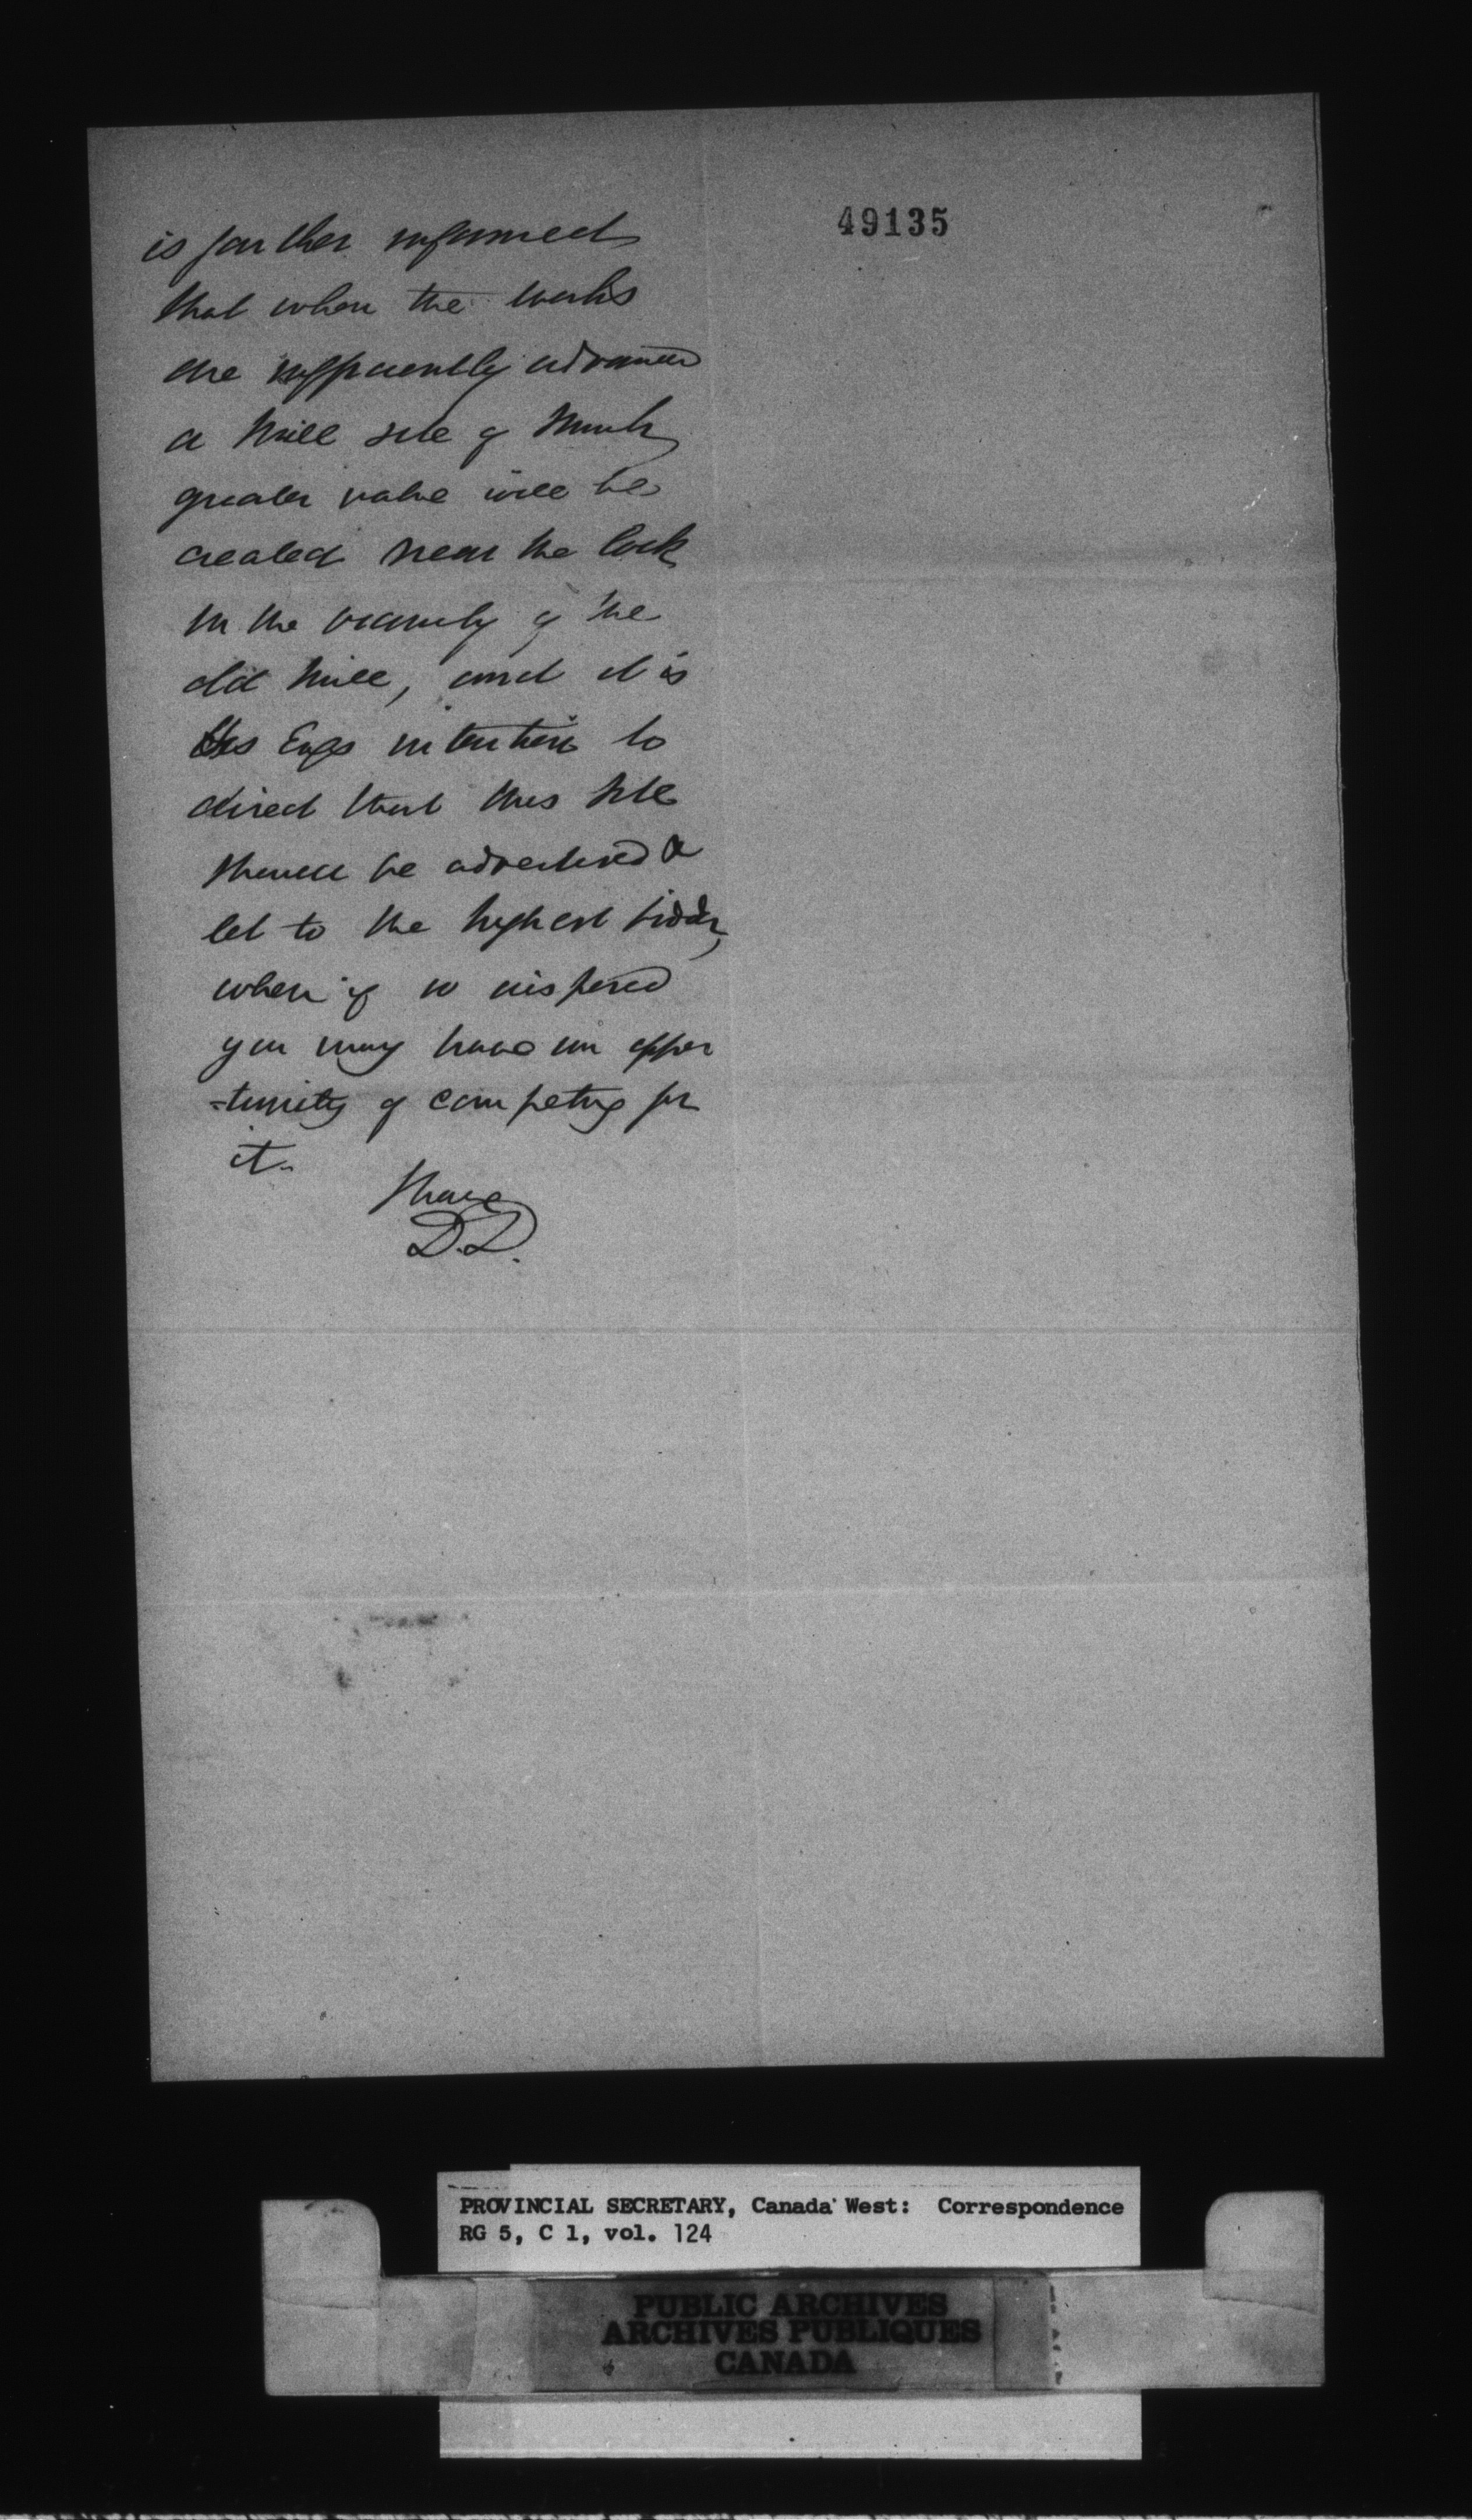 49135
is farther informed
that when the works
are sufficiently advanced
a Mill site of much
greater value will be
created near the lock
in the vicinity of the
old Mill, and it is
His Exys intention to
direct that this site
should be advertised &
let to the highest bidder,
when if so disposed
you may have an oppor
=tunity of competing for
it.
I have
D.D.
PROVINCIAL SECRETARY, Canada West: Correspondence
RG 5, C 1, vol. 124
PUBLIC ARCHIVES
ARCHIVES PUBLIQUES
CANADA